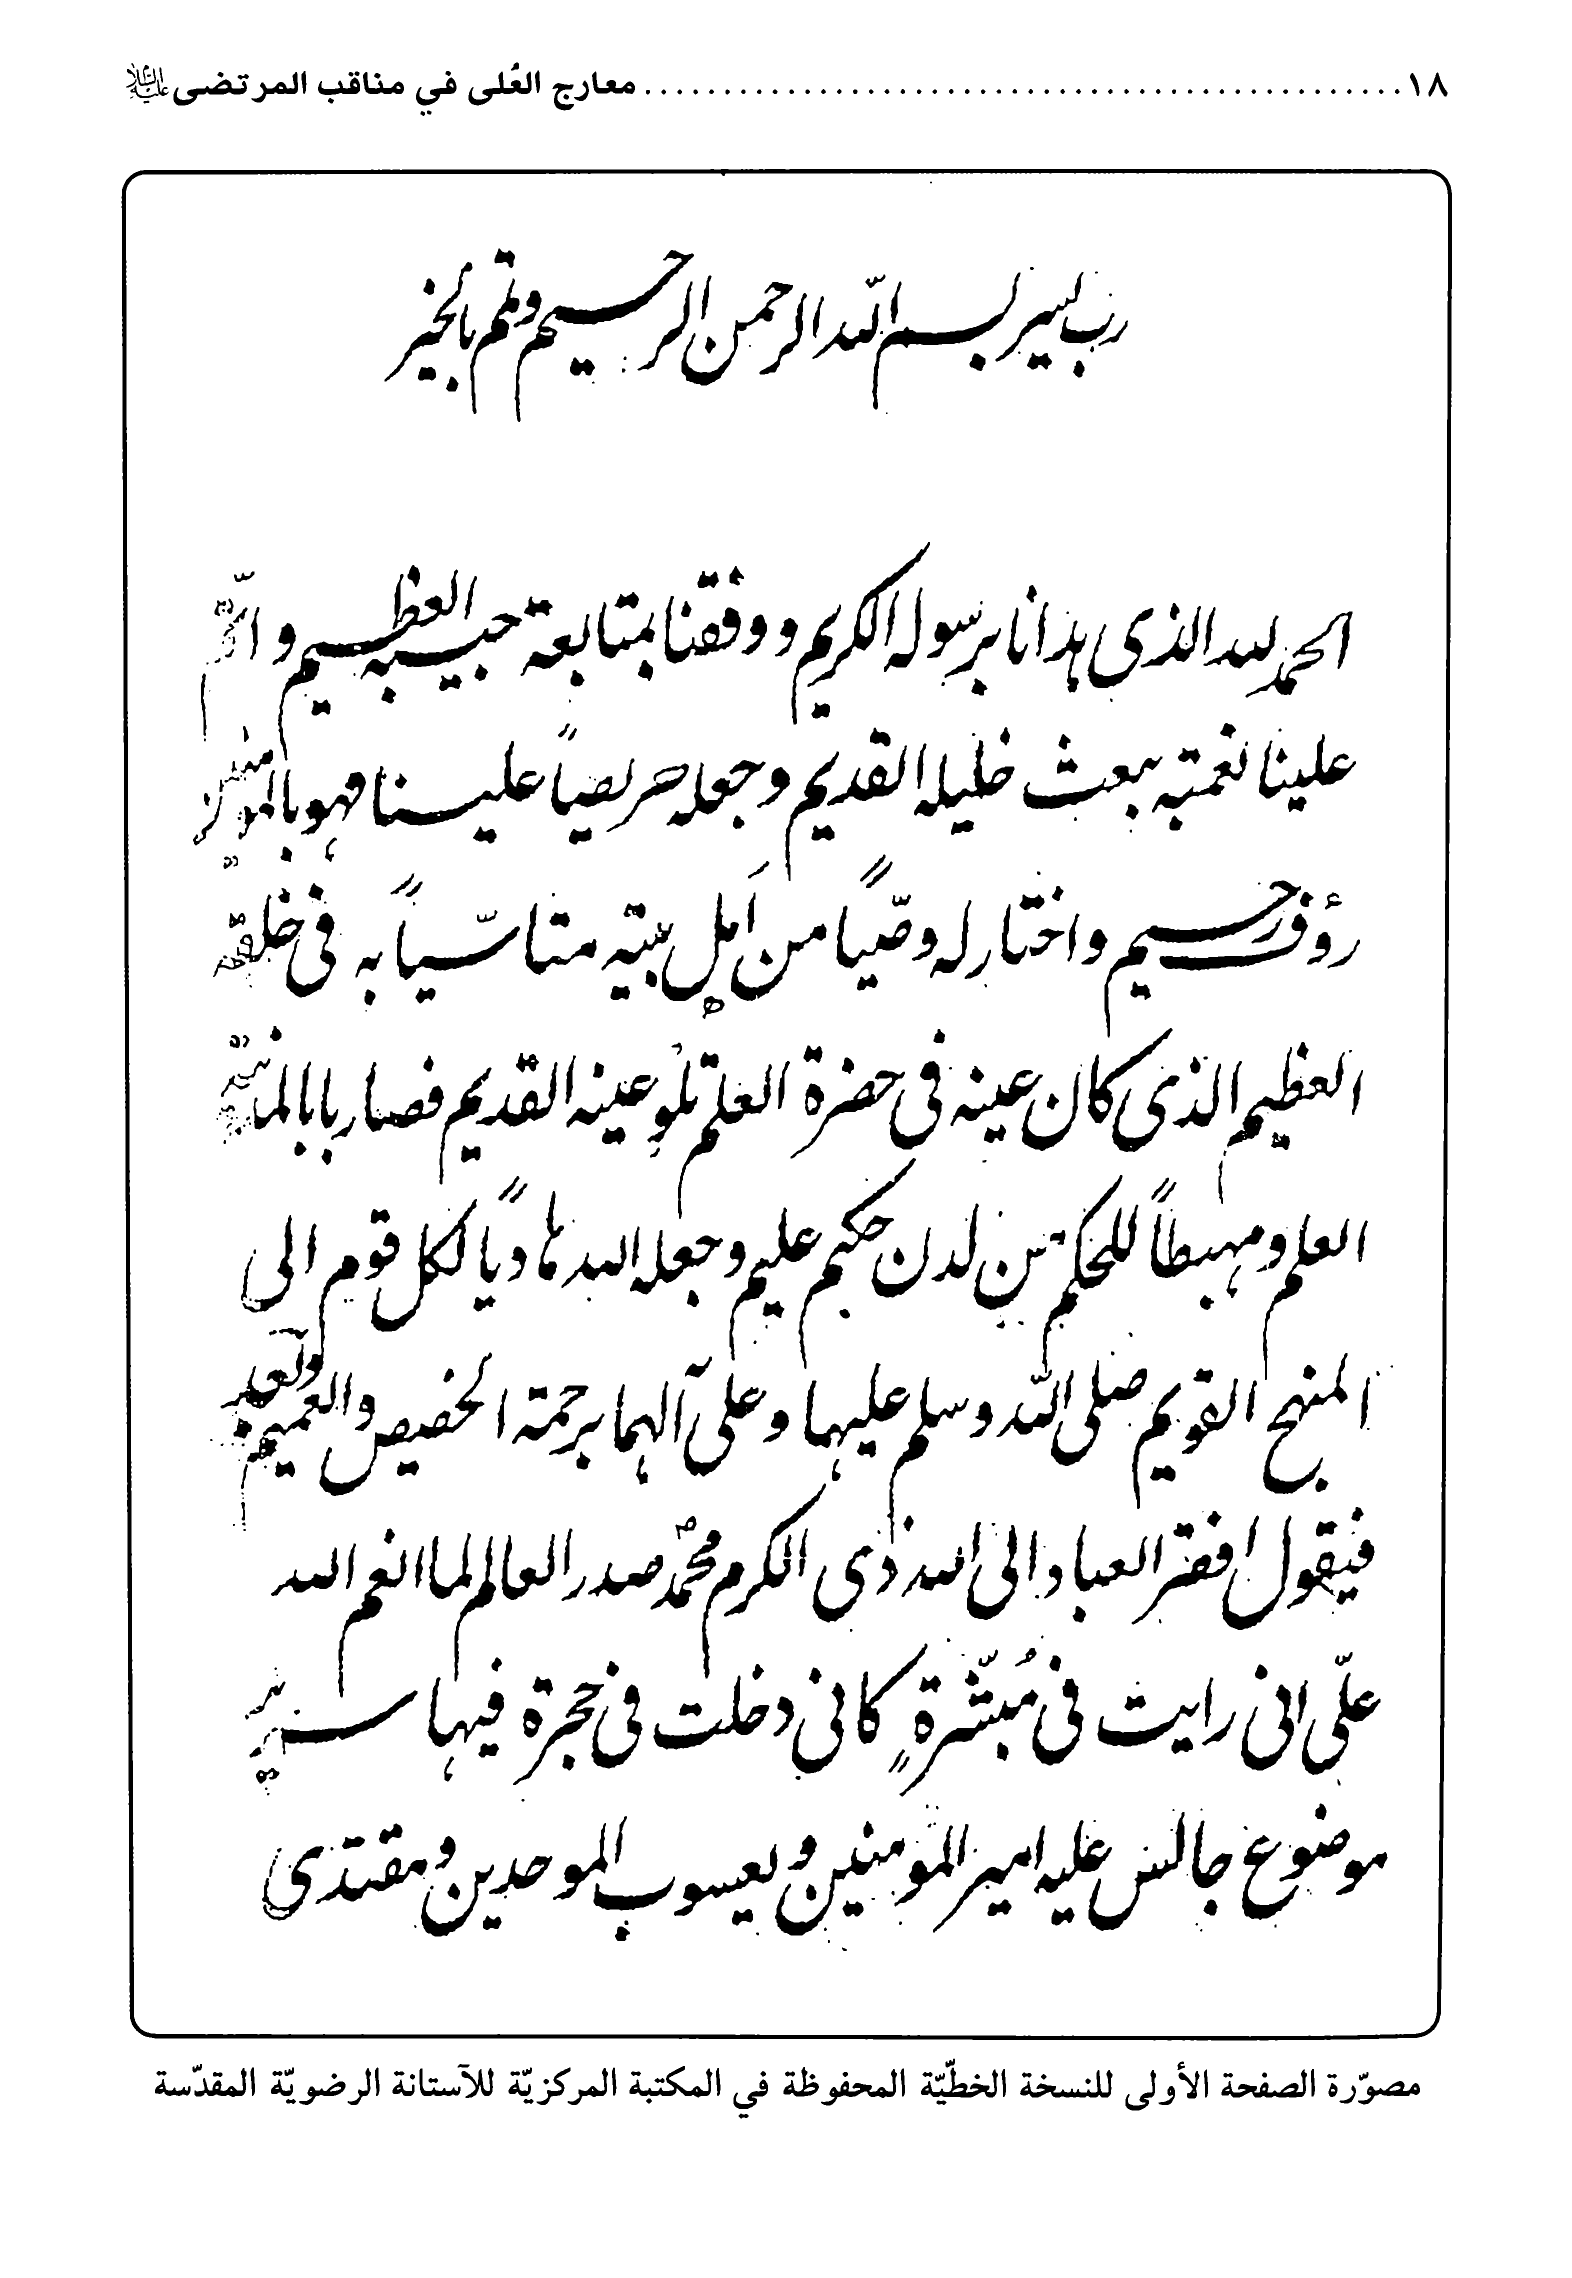 ١٨ ........ معارج العُلى في مناقب المرتضى عليه السلام
رب يسر بسم الله الرحمن الرحيم وتمم بالخير
الحمد لله الذى هدانا برسوله الكريم ووفقنا بمتابعة حبيبه العظيم و اتم
علينا نعمته ببعث خليله القديم وجعله حريصاً علينا فهو بالمومنين
رؤف رحيم واختار له وصّياً من اَهل بيته متاسّياً به فى خلقه
العظيم الذى كان عينه فى حضرة العلم تلو عينه القديم فصار بابا لمدينة
العلم ومهبطاً للحكم من لدن حكيم عليم وجعله الله هادياً لكل قوم الى
المنهج القويم صلى الله وسلم عليهما وعلى آلهما برحمته الخصيص والعميم وبعد
فيقول افقر العباد الى الله ذى الكرم محمّد صدر العالم لما انعم الله
علّى انى رايت فى مُبشّرةٍ كانى دخلت فى حجرة فيها سرير
موضوع جالس عليه امير المومنين و يعسوب الموحدين و مقتدى
مصوّرة الصفحة الأولى للنسخة الخطّيّة المحفوظة في المكتبة المركزيّة للآستانة الرضويّة المقدّسة